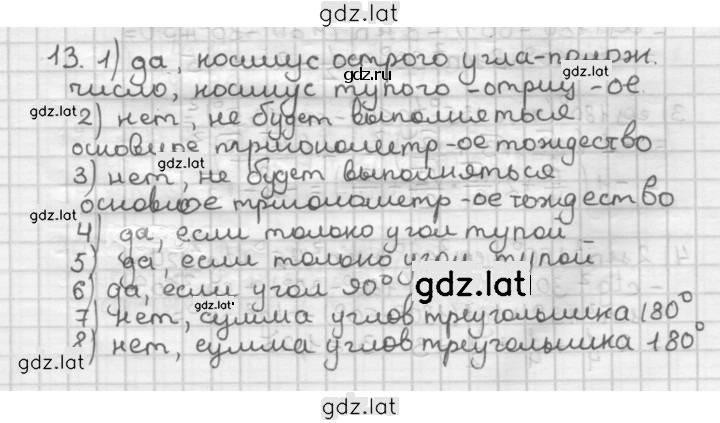 gdz.lat
13. 1) да, косинус острого угла - полож.
gdz.lat
число, косинус тупого - отриц - ое.
gdz.lat
gdz.lat
2) нет, не будет выполняться
основное тригонометр - ое тождество
3) нет, не будет выполняться
gdz.lat
основное тригонометр - ое тождество
gdz.lat
4) да, если только угол тупой
5) да, если только угол тупой
6) да, если угол 90°
gdz.lat
gdz.lat
7) нет, сумма углов треугольника 180°
8) нет, сумма углов треугольника 180°
gdz.lat